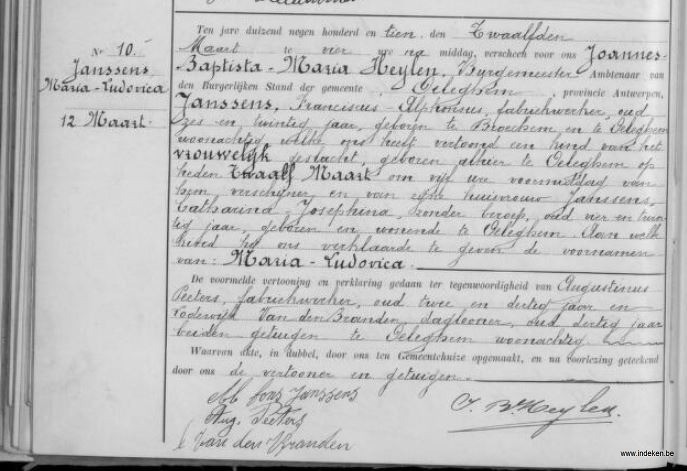 Nr 10.
Janssens,
Maria-Ludovica
12 Maart.
Ten jare duizend negen honderd en tien, den Twaalfden
Maart te vier ure na middag, verscheen voor ons Joannes-
Baptista-Maria Heylen, Burgemeester Ambtenaar van
den Burgerlijken Stand der gemeente Oeleghem, provincie Antwerpen,
Janssens, Franciscus-Alphonsus, fabriekwerker, oud
zes en twintig jaar, geboren te Broechem en te Oeleghem
woonachtig welke ons heeft vertoond een kind van het
vrouwelijk geslacht, geboren alhier te Oeleghem op
heden Twaalf Maart om vijf ure voormiddag van
hem verschijner en van zijne huisvrouw Janssens,
Catharina Josephina, zonder beroep, oud vier en twin-
tig jaar, geboren en wonende te Oeleghem Aan welk
kind hij ons verklaarde te geven de voornamen
van: Maria-Ludovica.
De voormelde vertooning en verklaring gedaan ter tegenwoordigheid van Augustinus
Peeters, fabriekwerker, oud twee en dertig jaar en
Lodewijk Van den Branden, daglooner, oud dertig jaar
beiden getuigen te Oeleghem woonachtig
Waarvan akte, in dubbel, door ons ten Gemeentehuize opgemaakt, en na voorlezing geteekend
door ons de vertooner en getuigen.
Janssens
Aug. Peeters
J. Bte Heylen.
L Van den Branden
www.indeken.be